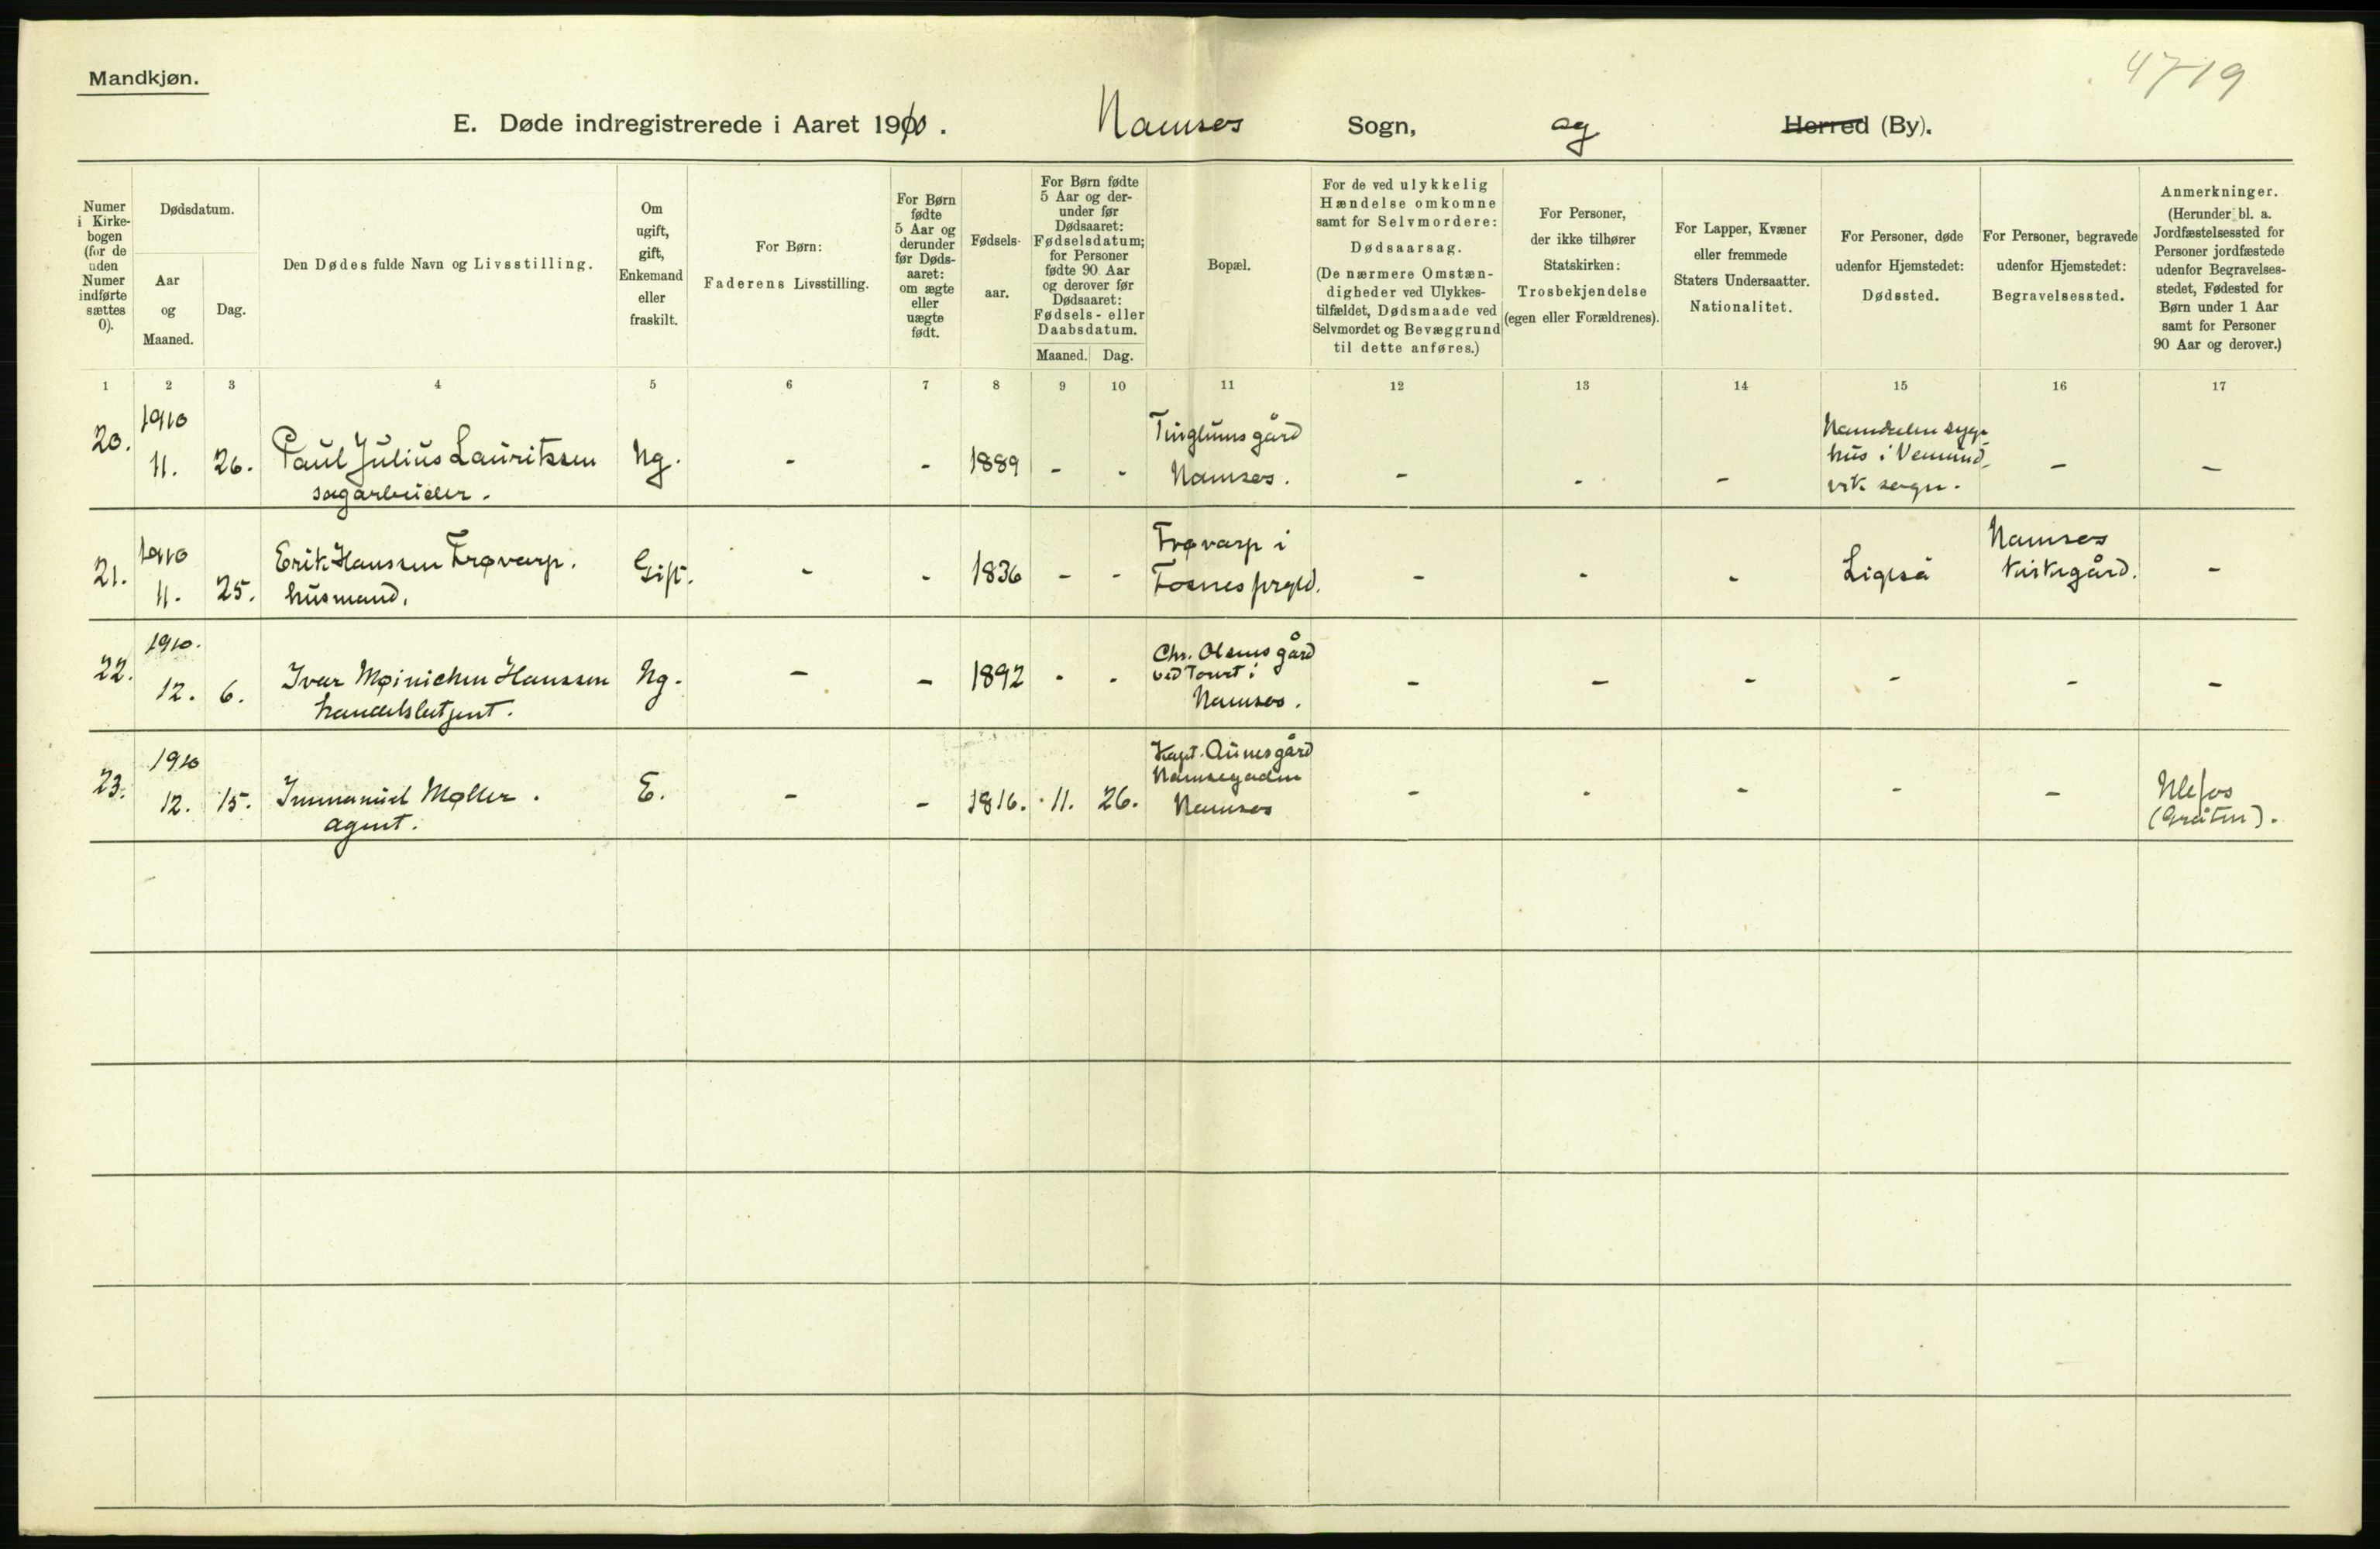 Mandkjøn.
4719
E. Døde indregistrerede i Aaret 1910. Namsos Sogn, og Herred (By).
Numer i Kirkebogen (for de uden Numer indførte sættes 0).
Dødsdatum.
Aar og Maaned.
Dag.
Den Dødes fulde Navn og Livsstilling.
Om ugift, gift, Enkemand eller fraskilt.
For Børn:
Faderens Livsstilling.
For Børn fødte 5 Aar og derunder før Dødsaaret: om ægte eller uægte født.
Fødselsaar.
For Børn fødte 5 Aar og derunder før Dødsaaret: Fødselsdatum; for Personer fødte 90 Aar og derover før Dødsaaret: Fødsels- eller Daabsdatum.
Maaned. Dag.
Bopæl.
For de ved ulykkelig Hændelse omkomne samt for Selvmordere:
Dødsaarsag.
(De nærmere Omstændigheder ved Ulykkestilfældet, Dødsmaade ved Selvmordet og Bevæggrund til dette anføres.)
For Personer, der ikke tilhører Statskirken:
Trosbekjendelse
(egen eller Forældrenes).
For Lapper, Kvæner eller fremmede Staters Undersaatter.
Nationalitet.
For Personer, døde udenfor Hjemstedet:
Dødssted.
For Personer, begravede udenfor Hjemstedet:
Begravelsessted.
Anmerkninger.
(Herunder bl. a. Jordfæstelsessted for Personer jordfæstede udenfor Begravelsesstedet, Fødested for Børn under 1 Aar samt for Personer 90 Aar og derover.)
1 2 3 4 5 6 7 8 9 10 11 12 13 14 15 16 17
20. 1910 11. 26. Paul Julius Lauritssen sagarbeider. Ug. - - 1889 - - Tinglumsgård Namsos. - - - Namdalens sygehus i Vemundvik sogn. - -
21. 1910 11. 25. Erik Hanssen Frøvarp. husmand. Gift. - - 1836 - - Frøvarp i Fosnes prgld. - - - Namsos kirkegård. -
22. 1910. 12. 6. Ivar Møinichen Hanssen handelsbetjent. Ug. - - 1892 - - Chr. Olsens gård ved Torvet i Namsos. - - - - - -
23. 1910 12. 15. Immanuel Møller. agent. E. - - 1816. 11. 26. Kapt. Aunes gård Namsegaden Namsos - - - - - Ulefos (Gråten).